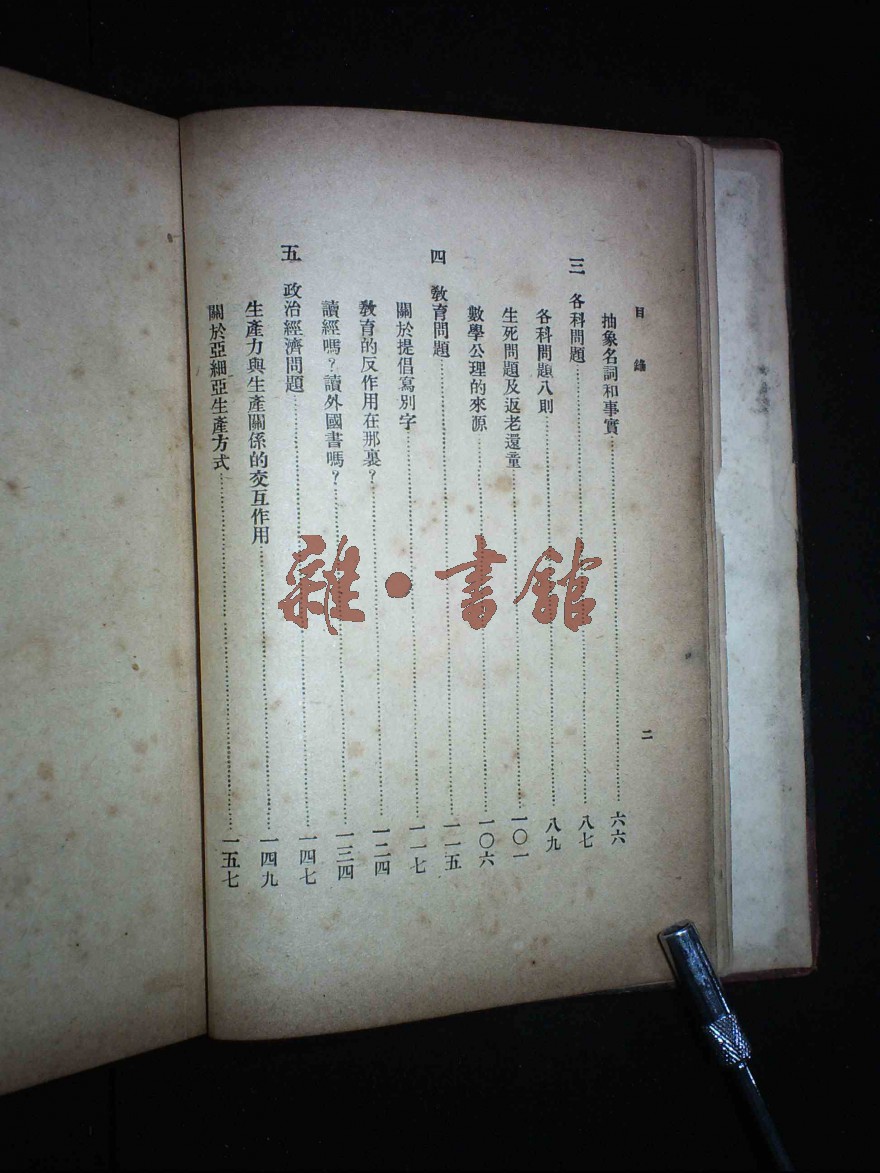 目錄
二
抽象名詞和事實……六六
三 各科問題……八七
各科問題八則……八九
生死問題及返老還童……一〇一
數學公理的來源……一〇六
四 教育問題……一一五
關於提倡寫別字……一一七
教育的反作用在那裏？……一二四
讀經嗎？讀外國書嗎？……一三四
五 政治經濟問題……一四七
生產力與生產關係的交互作用……一四九
關於亞細亞生產方式……一五七
雜·書館